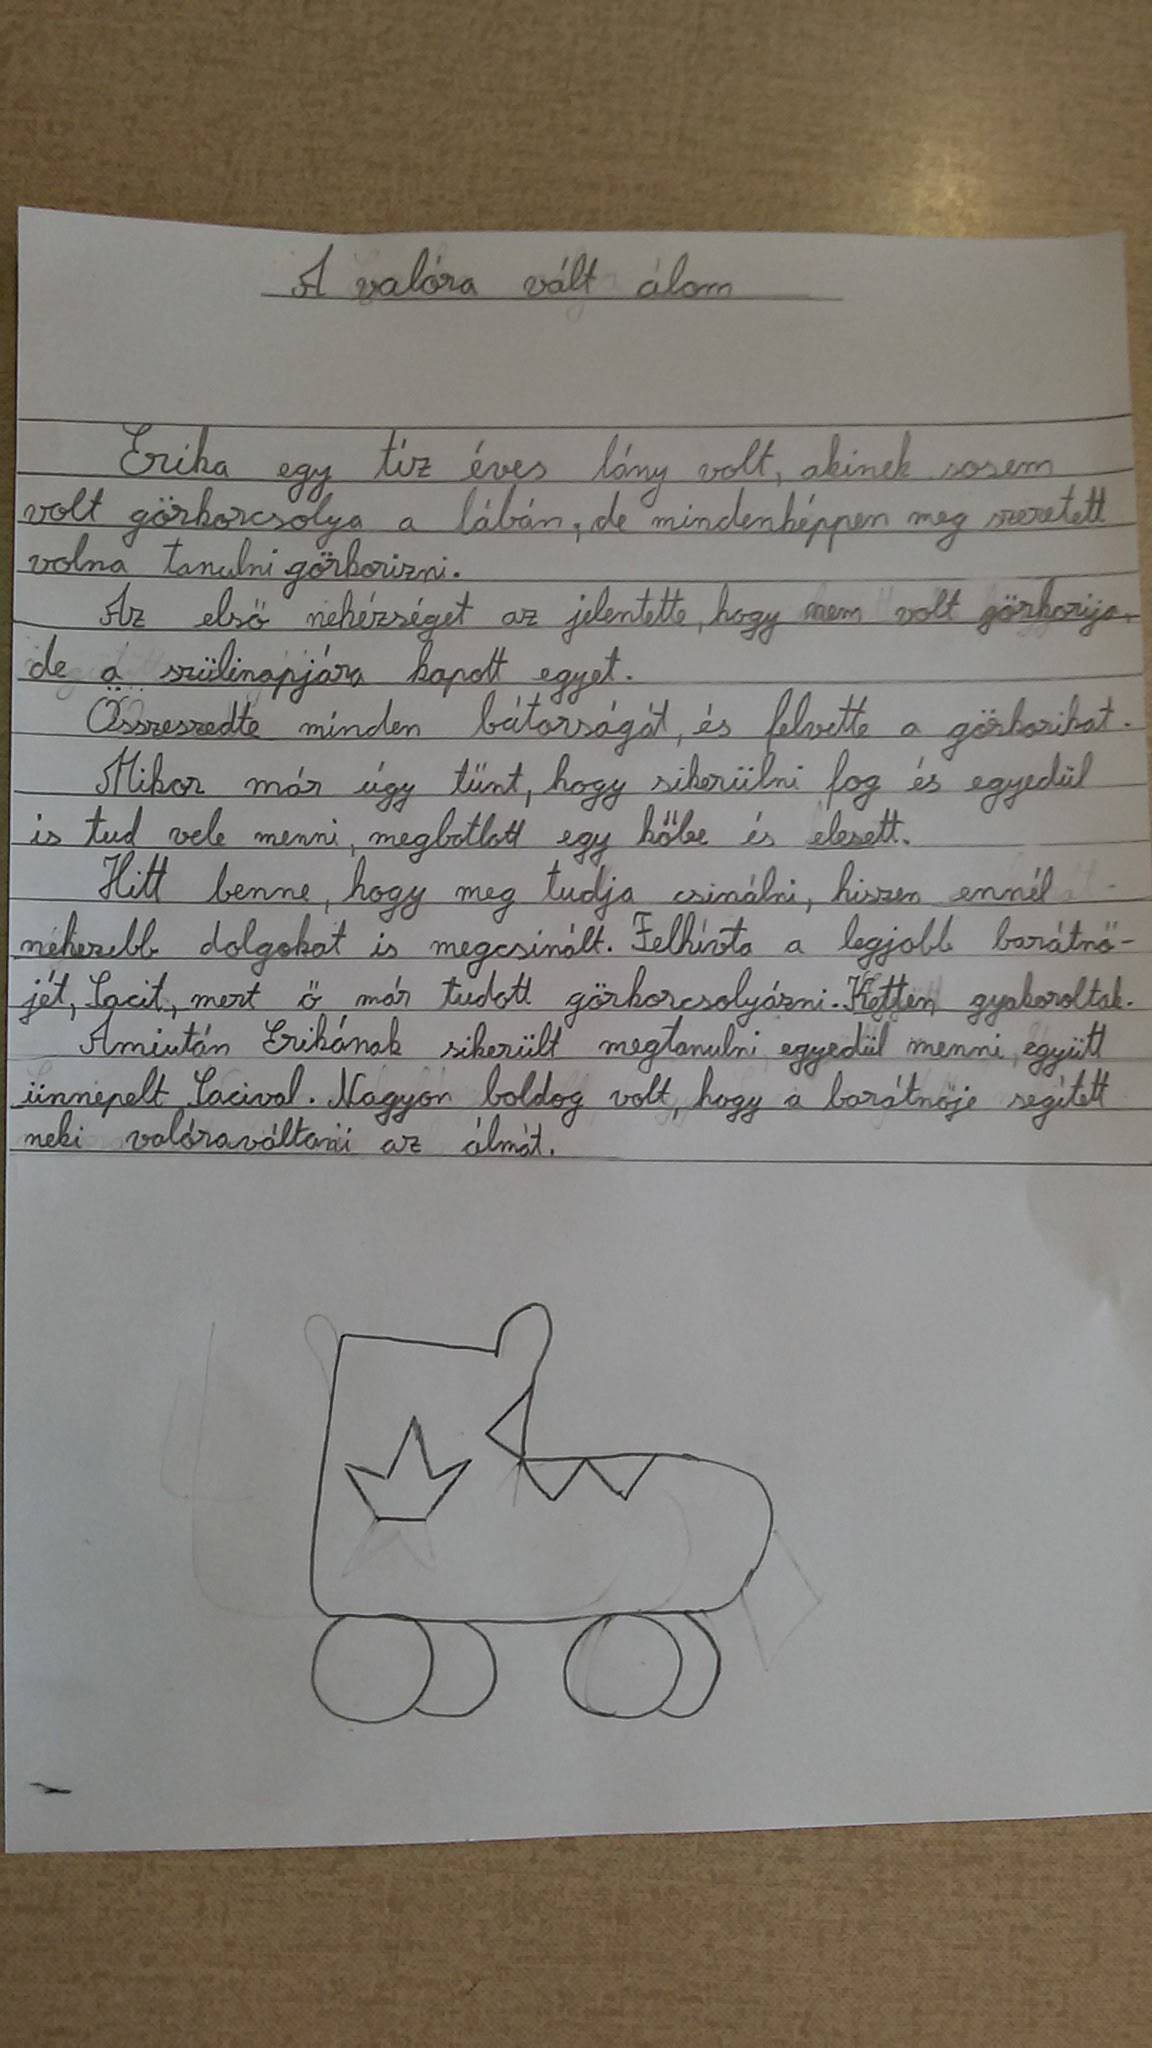 A valóra vált álom
Erika egy tíz éves lány volt, akinek sosem
volt görkorcsolya a lábán, de mindenképpen meg szeretett
volna tanulni görkorizni.
Az első nehézséget az jelentette, hogy nem volt görkorija,
de a szülinapjára kapott egyet.
Összeszedte minden bátorságát, és felvette a görkorikat.
Mikor már úgy tűnt, hogy sikerülni fog és egyedül
is tud vele menni, megbotlott egy kőbe és elesett.
Hitt benne, hogy meg tudja csinálni, hiszen ennél
nehezebb dolgokat is megcsinált. Felhívta a legjobb barátnő-
jét, Lacit, mert ő már tudott görkorcsolyázni. Ketten gyakoroltak.
Amiután Erikának sikerült megtanulni egyedül menni, együtt
ünnepelt Lacival. Nagyon boldog volt, hogy a barátnője segített
neki valóraváltani az álmát.